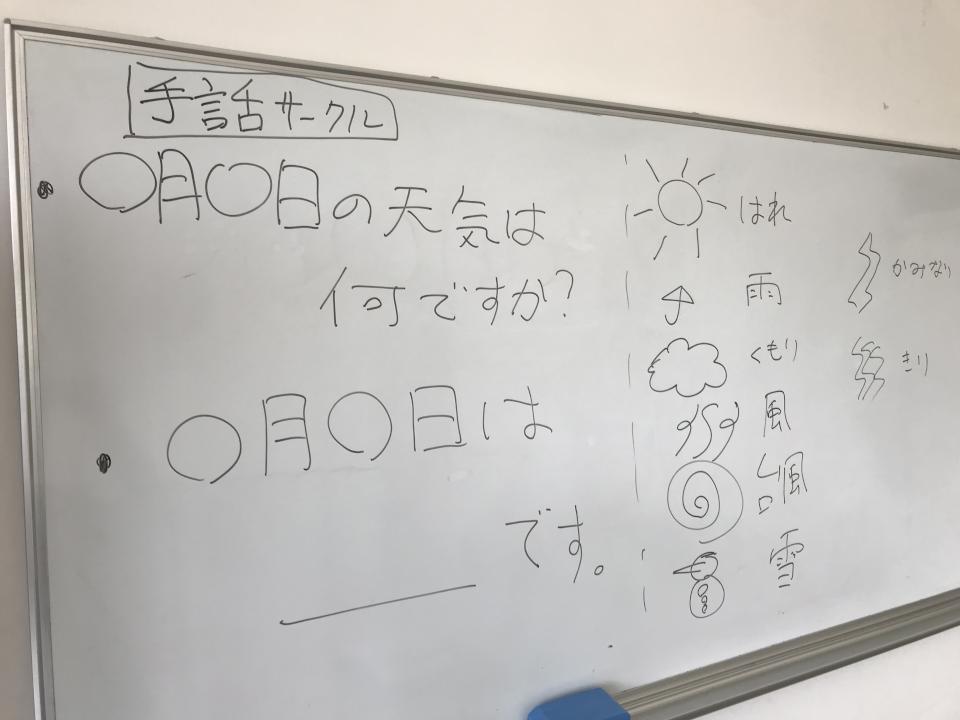 手話サークル
・〇月〇日の天気は
何ですか?
・〇月〇日は
＿＿＿です。
はれ
雨
くもり
風
台風
雪
かみなり
きり